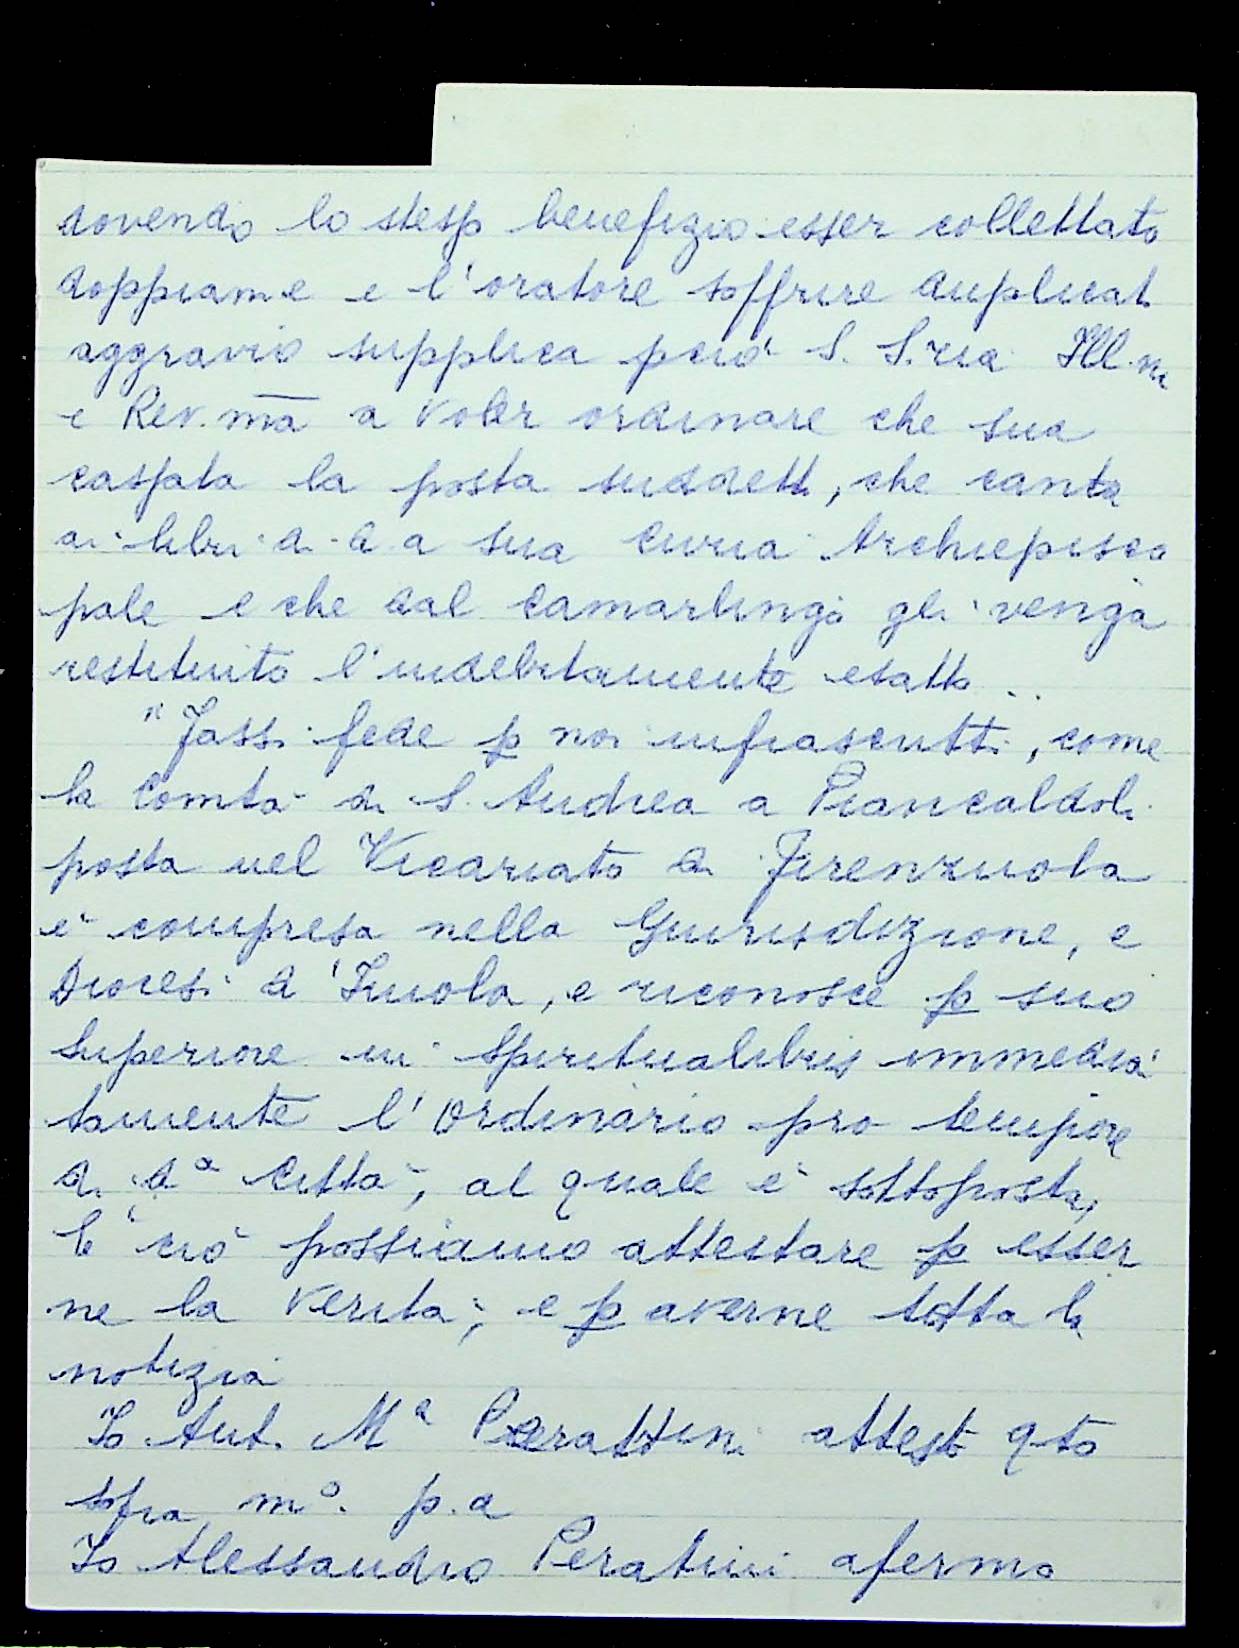 dovendo lo stesso benefizio esser collettato
doppiame e l'oratore soffrire duplicat
aggravio supplica però S. S.ria Ill.m
e Rev.ma a voler ordinare che sua
cassata la posta suddett, che canta
ai libri di d.a sua Curia Archiepisco
pale e che dal Camarlingo gli venga
restituito l'indebitamente esatto ..
"Fassi fede p noi infrascritti, come
la Comtà di S. Andrea a Piancaldoli
posta nel Vicariato di Firenzuola
è compresa nella Giurisdizione, e
Diocesi d'Imola, e riconosce p suo
Superiore in Spiritualibus immedia
tamente l'Ordinario pro tempore
di da Città, al quale è sottoposta,
E ciò possiamo attestare p esser
ne la verità; e p averne tutta la
notizia
Io Ant. Ma Perattini attesto qto
sopra mo. p.a
Io Alessandro Peratini afermo